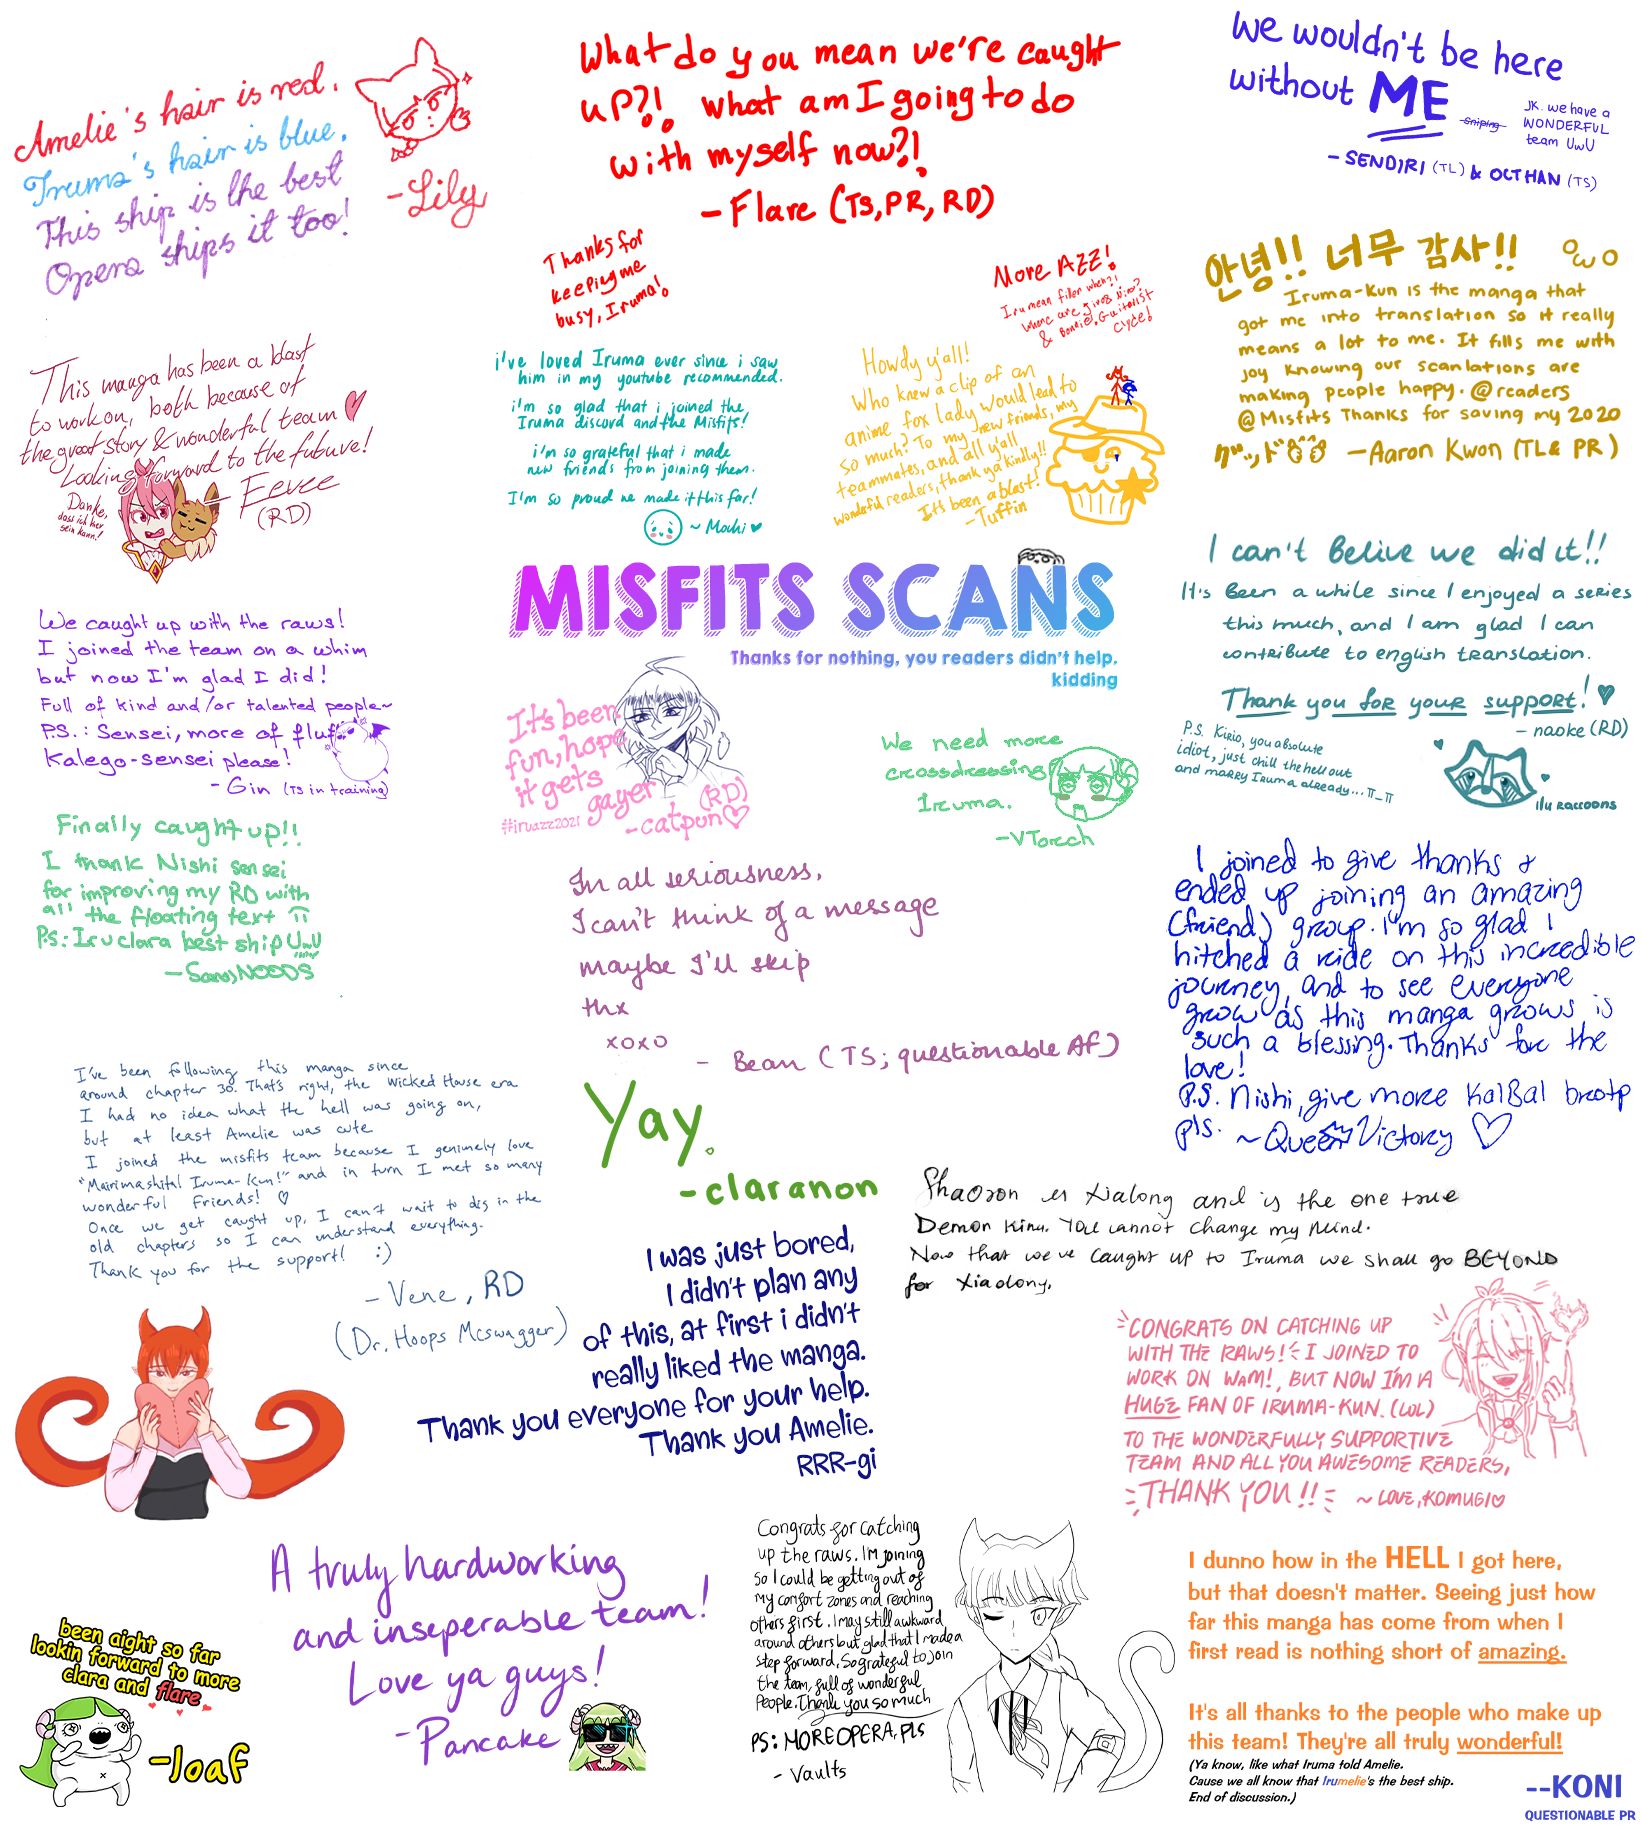 Amelie's hair is red.
Iruma's hair is blue.
This ship is the best
Opera ships it too!
-Lily
What do you mean we're caught
up?!, what am I going to do
with myself now?!
-Flare (TS, PR, RD)
Thanks for
keeping me
busy, Iruma!
More AZZ!
Irumean filler when?!
Where are
& Bonnie, Guitarist
Clyde!
We wouldn't be here
without ME
sniping
JK. we have a
WONDERFUL
team UwU
- SENDIRI (TL) & OCTHAN (TS)
안녕!! 너무 감사!! OωO
Iruma-Kun is the manga that
got me into translation so it really
means a lot to me. It fills me with
joy knowing our scanlations are
making people happy. @readers
@Misfits Thanks for saving my 2020
-Aaron Kwon (TL & PR)
This manga has been a blast
to work on, both because of
the great story & wonderful team
Looking forward to the future!
- Eevee
(RD)
Danke,
dass ich hier
sein kann!
i've loved Iruma ever since i saw
him in my youtube recommended.
i'm so glad that i joined the
Iruma discord and the Misfits!
i'm so grateful that i made
new friends from joining them.
I'm so proud we made it this far!
~ Mochi ♥
Howdy y'all!
Who knew a clip of an
anime fox lady would lead to
so much? To my new friends, my
teammates, and all y'all
wonderful readers, thank ya kindly!!
It's been a blast!
-Tuffin
I can't Belive we did it!!
It's Been a while since I enjoyed a series
this much, and I am glad I can
contribute to english translation.
Thank you for your support! ♥
- naoke (RD)
P.S. Kirio, you absolute
idiot, just chill the hell out
and marry Iruma already... π_π
ilu raccoons
MISFITS SCANS
Thanks for nothing, you readers didn't help.
kidding
We caught up with the raws!
I joined the team on a whim
but now I'm glad I did!
Full of kind and/or talented people~
P.S.: Sensei, more of fluff
Kalego-sensei please!
- Gin (TS in training)
It's been
fun, hope
it gets
gayer
#iruazz2021
(RD)
-catpun♡
We need more
crossdressing
Iruma.
-VTorch
Finally caught up!!
I thank Nishi sensei
for improving my RD with
all the floating text π
P.S: Iruclara best ship UwU
In all seriousness,
I can't think of a message
maybe I'll skip
thx
xoxo
- Bean (TS; questionable AF)
I joined to give thanks &
ended up joining an amazing
(friend) group. I'm so glad I
hitched a ride on this incredible
journey, and to see everyone
grow as this manga grows is
such a blessing. Thanks for the
love!
P.S. Nishi, give more KalBal brotp
pls. ~Queen Victory ♡
I've been following this manga since
around chapter 30. That's right, the Wicked House era
I had no idea what the hell was going on,
but at least Amelie was cute
I joined the misfits team because I genuinely love
"Mairimashita! Iruma-Kun!" and in turn I met so many
wonderful friends! ♡
Once we get caught up, I can't wait to dig in the
old chapters so I can understand everything.
Thank you for the support! :)
- Vene, RD
(Dr. Hoops McSwagger)
Yay.
-claranon
Shaoron es Xialong and is the one true
Demon King. You cannot change my mind.
Now that we've caught up to Iruma we shall go BEYOND
for Xiaolong.
I was just bored,
I didn't plan any
of this, at first i didn't
really liked the manga.
Thank you everyone for your help.
Thank you Amelie.
RRR-gi
CONGRATS ON CATCHING UP
WITH THE RAWS! I JOINED TO
WORK ON WAM!, BUT NOW I'M A
HUGE FAN OF IRUMA-KUN. (LOL)
TO THE WONDERFULLY SUPPORTIVE
TEAM AND ALL YOU AWESOME READERS,
THANK YOU!!
~ LOVE, KOMUGI♡
A truly hardworking
and inseperable team!
Love ya guys!
-Pancake
been aight so far
lookin forward to more
clara and flare
-loaf
Congrats for catching
up the raws. I'm joining
so I could be getting out of
my comfort zones and reaching
others first. I may still awkward
around others but glad that I made a
step forward. So grateful to join
the team, full of wonderful
people. Thank you so much
PS: MORE OPERA, PLS
- Vaults
I dunno how in the HELL I got here,
but that doesn't matter. Seeing just how
far this manga has come from when I
first read is nothing short of amazing.
It's all thanks to the people who make up
this team! They're all truly wonderful!
(Ya know, like what Iruma told Amelie.
Cause we all know that Irumelie's the best ship.
End of discussion.)
--KONI
QUESTIONABLE PR